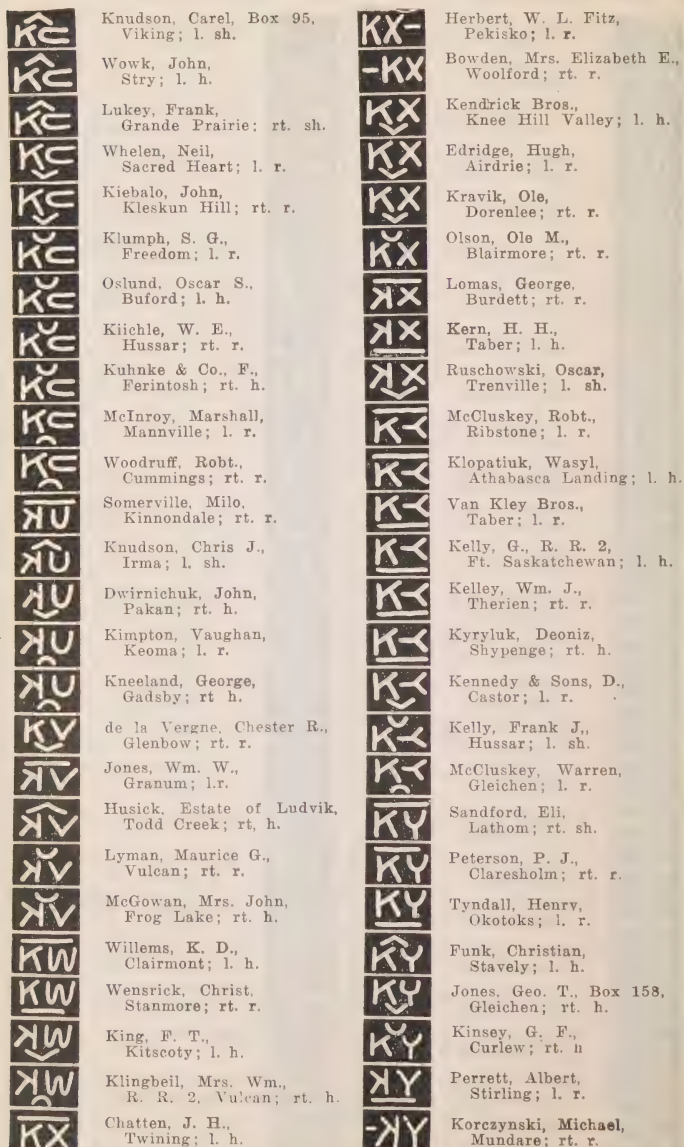 Knudson, Carel, Box 95,
Viking; l. sh.
Wowk, John,
Stry; l. h.
Lukey, Frank,
Grande Prairie; rt. sh.
Whelen, Neil,
Sacred Heart; l. r.
Kiebalo, John,
Kleskun Hill; rt. r.
Klumph, S. G.,
Freedom; l. r.
Oslund, Oscar S.,
Buford; l. h.
Kiichle, W. E.,
Hussar; rt. r.
Kuhnke & Co., F.,
Ferintosh; rt. h.
McInroy, Marshall,
Mannville; l. r.
Woodruff, Robt.,
Cummings; rt. r.
Somerville, Milo,
Kinnondale; rt. r.
Knudson, Chris J.,
Irma; l. sh.
Dwirnichuk, John,
Pakan; rt. h.
Kimpton, Vaughan,
Keoma; l. r.
Kneeland, George,
Gadsby; rt h.
KV de la Vergne, Chester R.,
Glenbow; rt. r.
Jones, Wm. W.,
Granum; l.r.
Husick, Estate of Ludvik,
Todd Creek; rt, h.
Lyman, Maurice G.,
Vulcan; rt. r.
McGowan, Mrs. John,
Frog Lake; rt. h.
KW Willems, K. D.,
Clairmont; l. h.
KW Wensrick, Christ,
Stanmore; rt. r.
King, F. T.,
Kitscoty; l. h.
Klingbeil, Mrs. Wm.,
R. R. 2, Vulcan; rt. h.
KX Chatten, J. H.,
Twining; l. h.
KX- Herbert, W. L. Fitz,
Pekisko; l. r.
-KX Bowden, Mrs. Elizabeth E.,
Woolford; rt. r.
KX Kendrick Bros.,
Knee Hill Valley; l. h.
KX Edridge, Hugh,
Airdrie; l. r.
KX Kravik, Ole,
Dorenlee; rt. r.
KX Olson, Ole M.,
Blairmore; rt. r.
Lomas, George,
Burdett; rt. r.
Kern, H. H.,
Taber; l. h.
Ruschowski, Oscar,
Trenville; l. sh.
McCluskey, Robt.,
Ribstone; l. r.
Klopatiuk, Wasyl,
Athabasca Landing; l. h.
Van Kley Bros.,
Taber; l. r.
Kelly, G., R. R. 2,
Ft. Saskatchewan; l. h.
Kelley, Wm. J.,
Therien; rt. r.
Kyryluk, Deoniz,
Shypenge; rt. h.
Kennedy & Sons, D.,
Castor; l. r.
Kelly, Frank J,,
Hussar; l. sh.
McCluskey, Warren,
Gleichen; l. r.
KY Sandford, Eli,
Lathom; rt. sh.
KY Peterson, P. J.,
Claresholm; rt. r.
KY Tyndall, Henry,
Okotoks; l. r.
KY Funk, Christian,
Stavely; l. h.
KY Jones, Geo. T., Box 158,
Gleichen; rt. h.
KY Kinsey, G. F.,
Curlew; rt. h
Perrett, Albert,
Stirling; l. r.
Korczynski, Michael,
Mundare; rt. r.